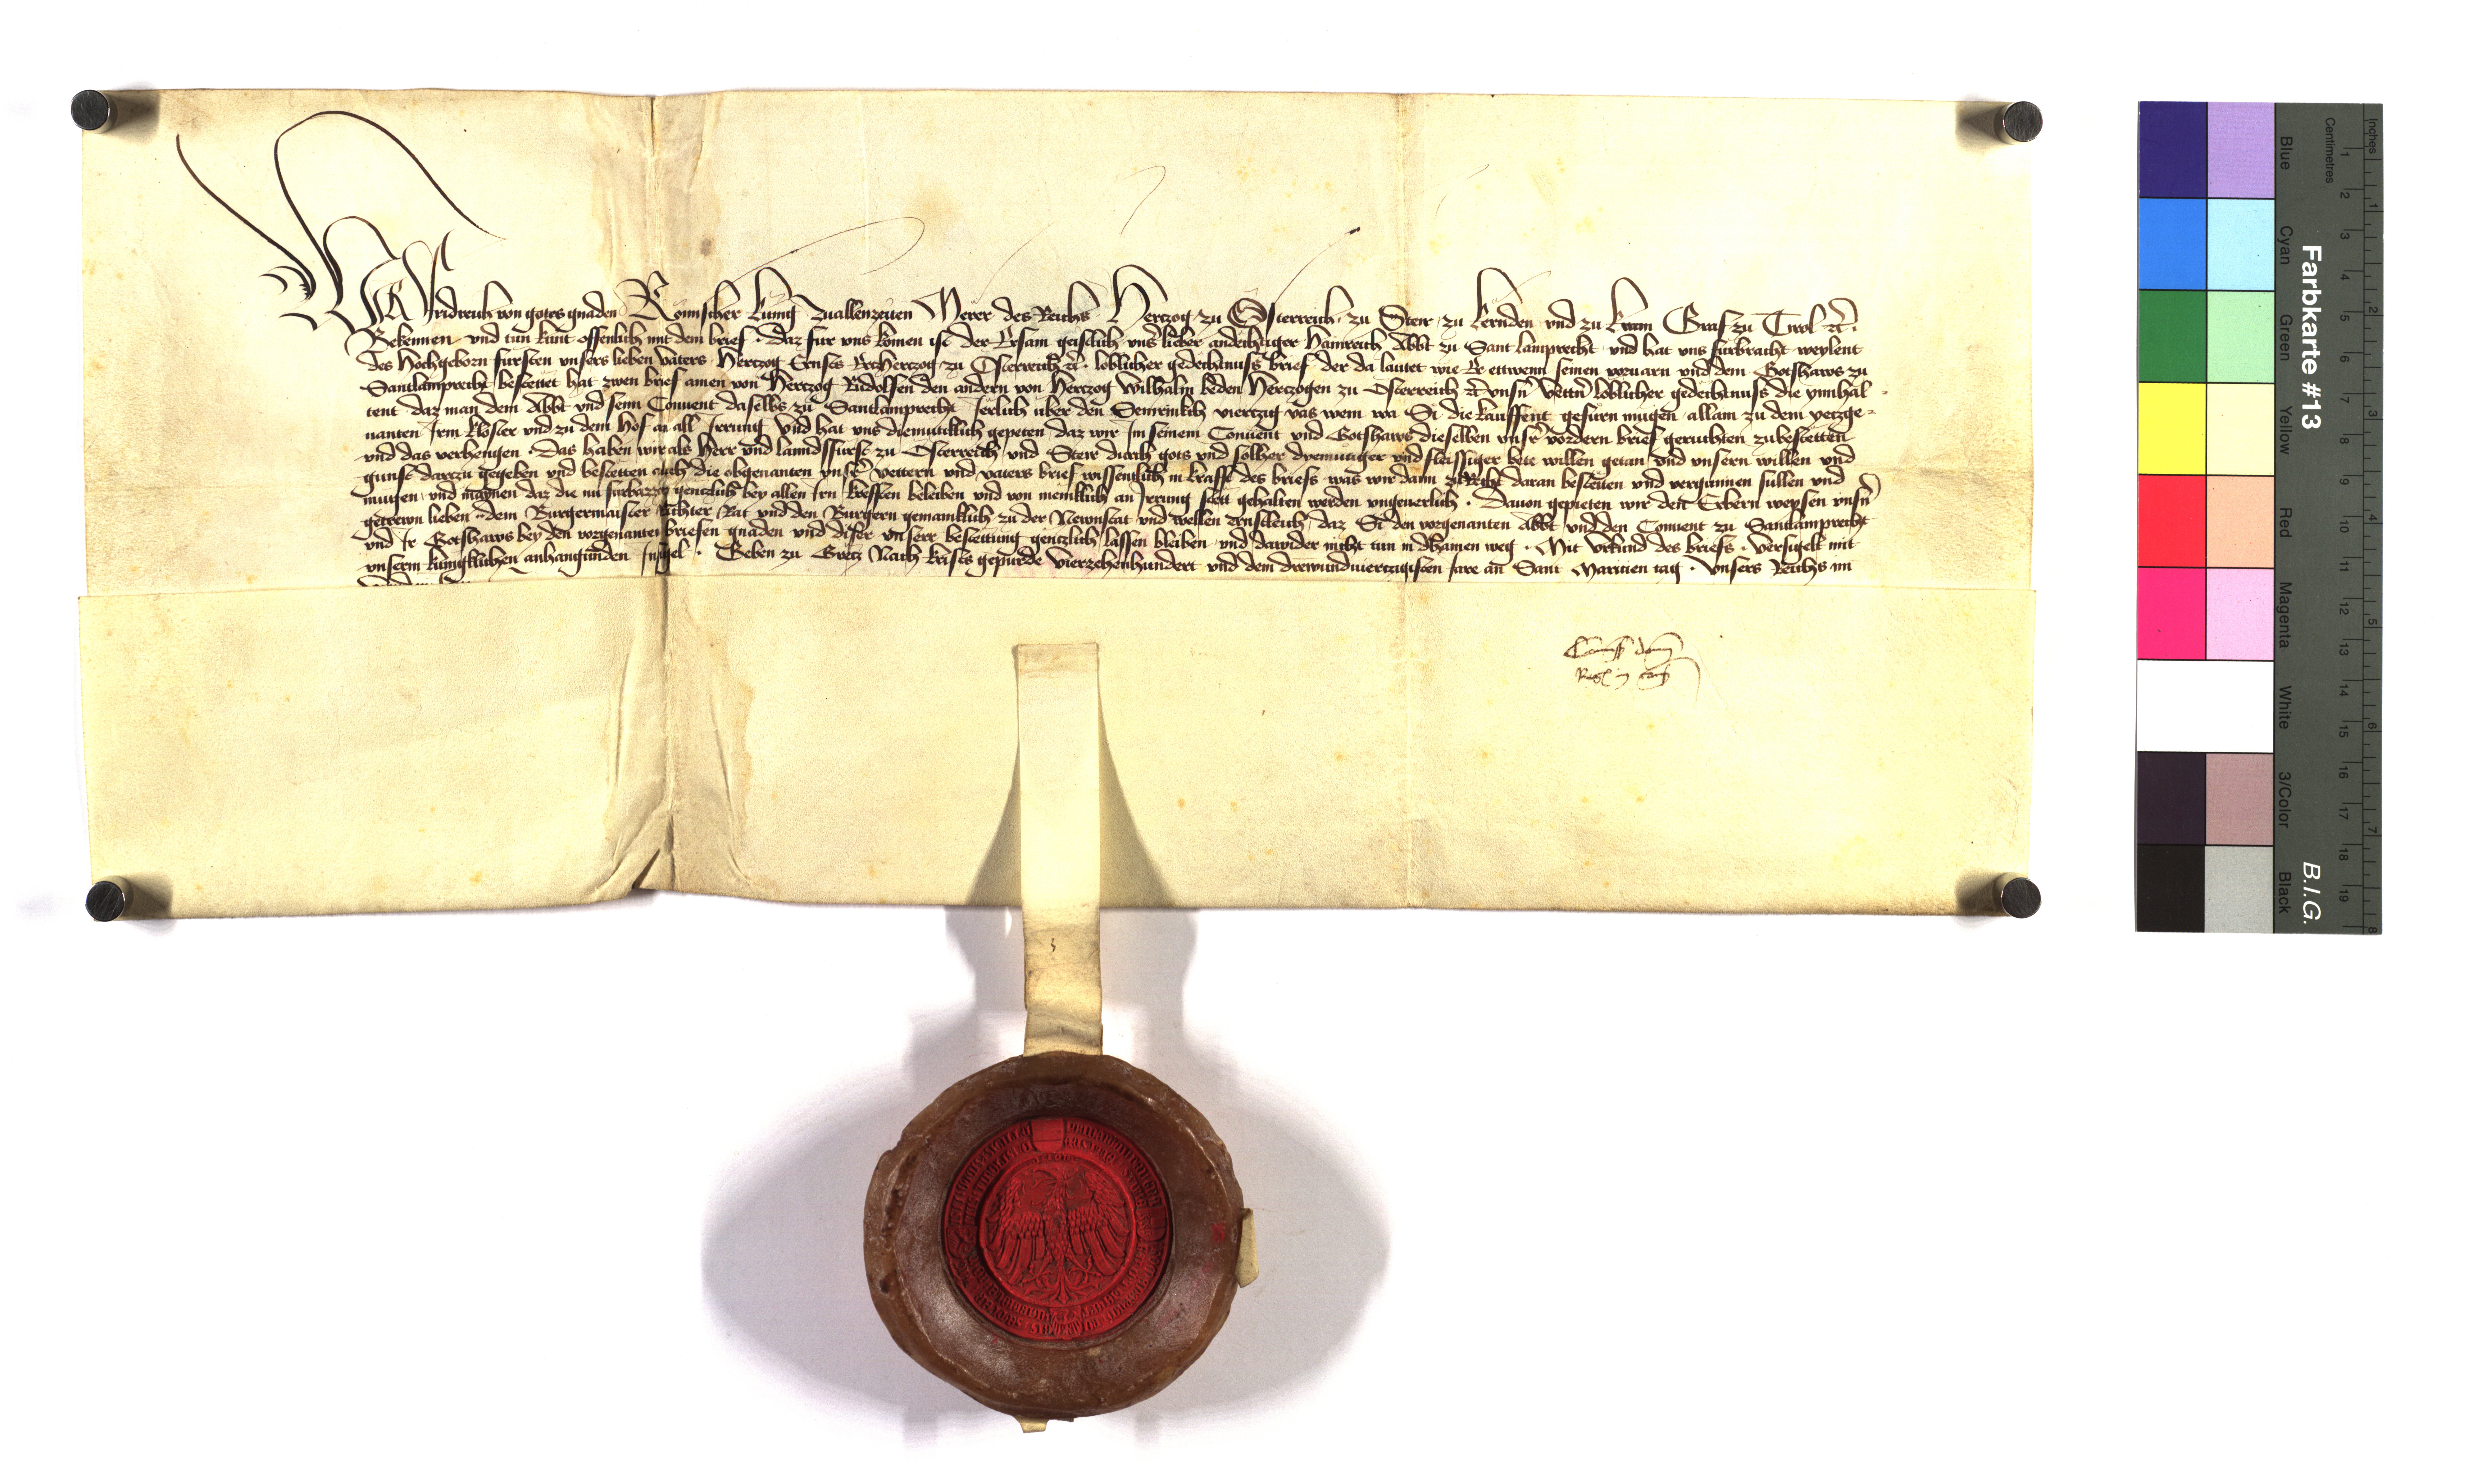 Wir Fridreich von gotes gnaden Römischer Kunig zuallenzeiten Merer des Reichs Hertzog zu Österreich zu Steir zu Kernden und zu Krain Graf zu Tirol etc.
Bekennen und tun kunt offenlich mit dem brief. daz fur uns komen ist der Ersam geistlich unser lieber andechtiger Hainreich Abbt zu Sant lamprecht und hat uns furbracht weylent
des Hochgeborn fursten unsers lieben vaters Hertzog Ernsts Ertzhertzog zu Österreich etc. loblicher gedechtnuss brief der da lautet wie Er ettwenn seinen vorvarn und dem Gotshaws zu
Santlamprecht bestettet hat zwen brief ainen von Hertzog Rudolffen den andern von Hertzog Wilhalm beden Hertzogen zu Österreich etc. unsern vettern loblicher gedechtnuss die ynnhal-
tent daz man dem Abbt und seim Convent daselbs zu Santlamprecht Jerlich uber den Semrinkch viertzig vas wein wa Si die kauffent gefurn mugen allain zu dem yetzge-
nanten Irm kloster und zu dem hof an all Irrung Und hat uns diemutiklich gepeten daz wir Im seinem Convent und Gotshaws dieselben unsrer vordern brief geruchten zubestetten
und das verhengen. Das haben wir als Herr und lanndsfurst zu Österreich und Steir durch gots und solher diemutiger und fleissiger bete willen getan und unsern willen und
gunst dartzu gegeben und bestetten auch die obgenanten unsrer vettern und vaters brief wissentlich in krafft des briefs was wir dann zu Recht daran bestetten und vergunnen sullen und
mugen und maynen daz die nu furbazzer gentzlich bey allen Irn krefften beleiben und von meniklich an Irrung stett gehalten werden ungeverlich. Davon gepieten wir den Erbern weysen unsern
getrewn lieben dem Burgermaister Richter Rat und den Burgern gemainklich zu der Newnstat und wellen ernstleich daz Si den vorgenanten Abbt und den Convent zu Santlamprecht
und Ir Gotshaws bey den vorgenanten briefen gnaden und diser unserr bestettung gentzlich lassen bleiben und dawider nicht tun in dhainen weg. Mit Urkund des briefs. Versigelt mit
unserm kunigklichen anhangunden Insigel. Geben zu Gretz Nach krists gepurde Vierzehenhundert und dem drewundviertzigisten Jare an Sant Marteien tag. Unsers Reichs im
Commissio domini
Regis in consilio
Farbkarte #13
B.I.G.
Inches
Centimetres
Blue
Cyan
Green
Yellow
Red
Magenta
White
3/Color
Black
1 2 3 4 5 6 7 8 9 10 11 12 13 14 15 16 17 18 19
1 2 3 4 5 6 7 8